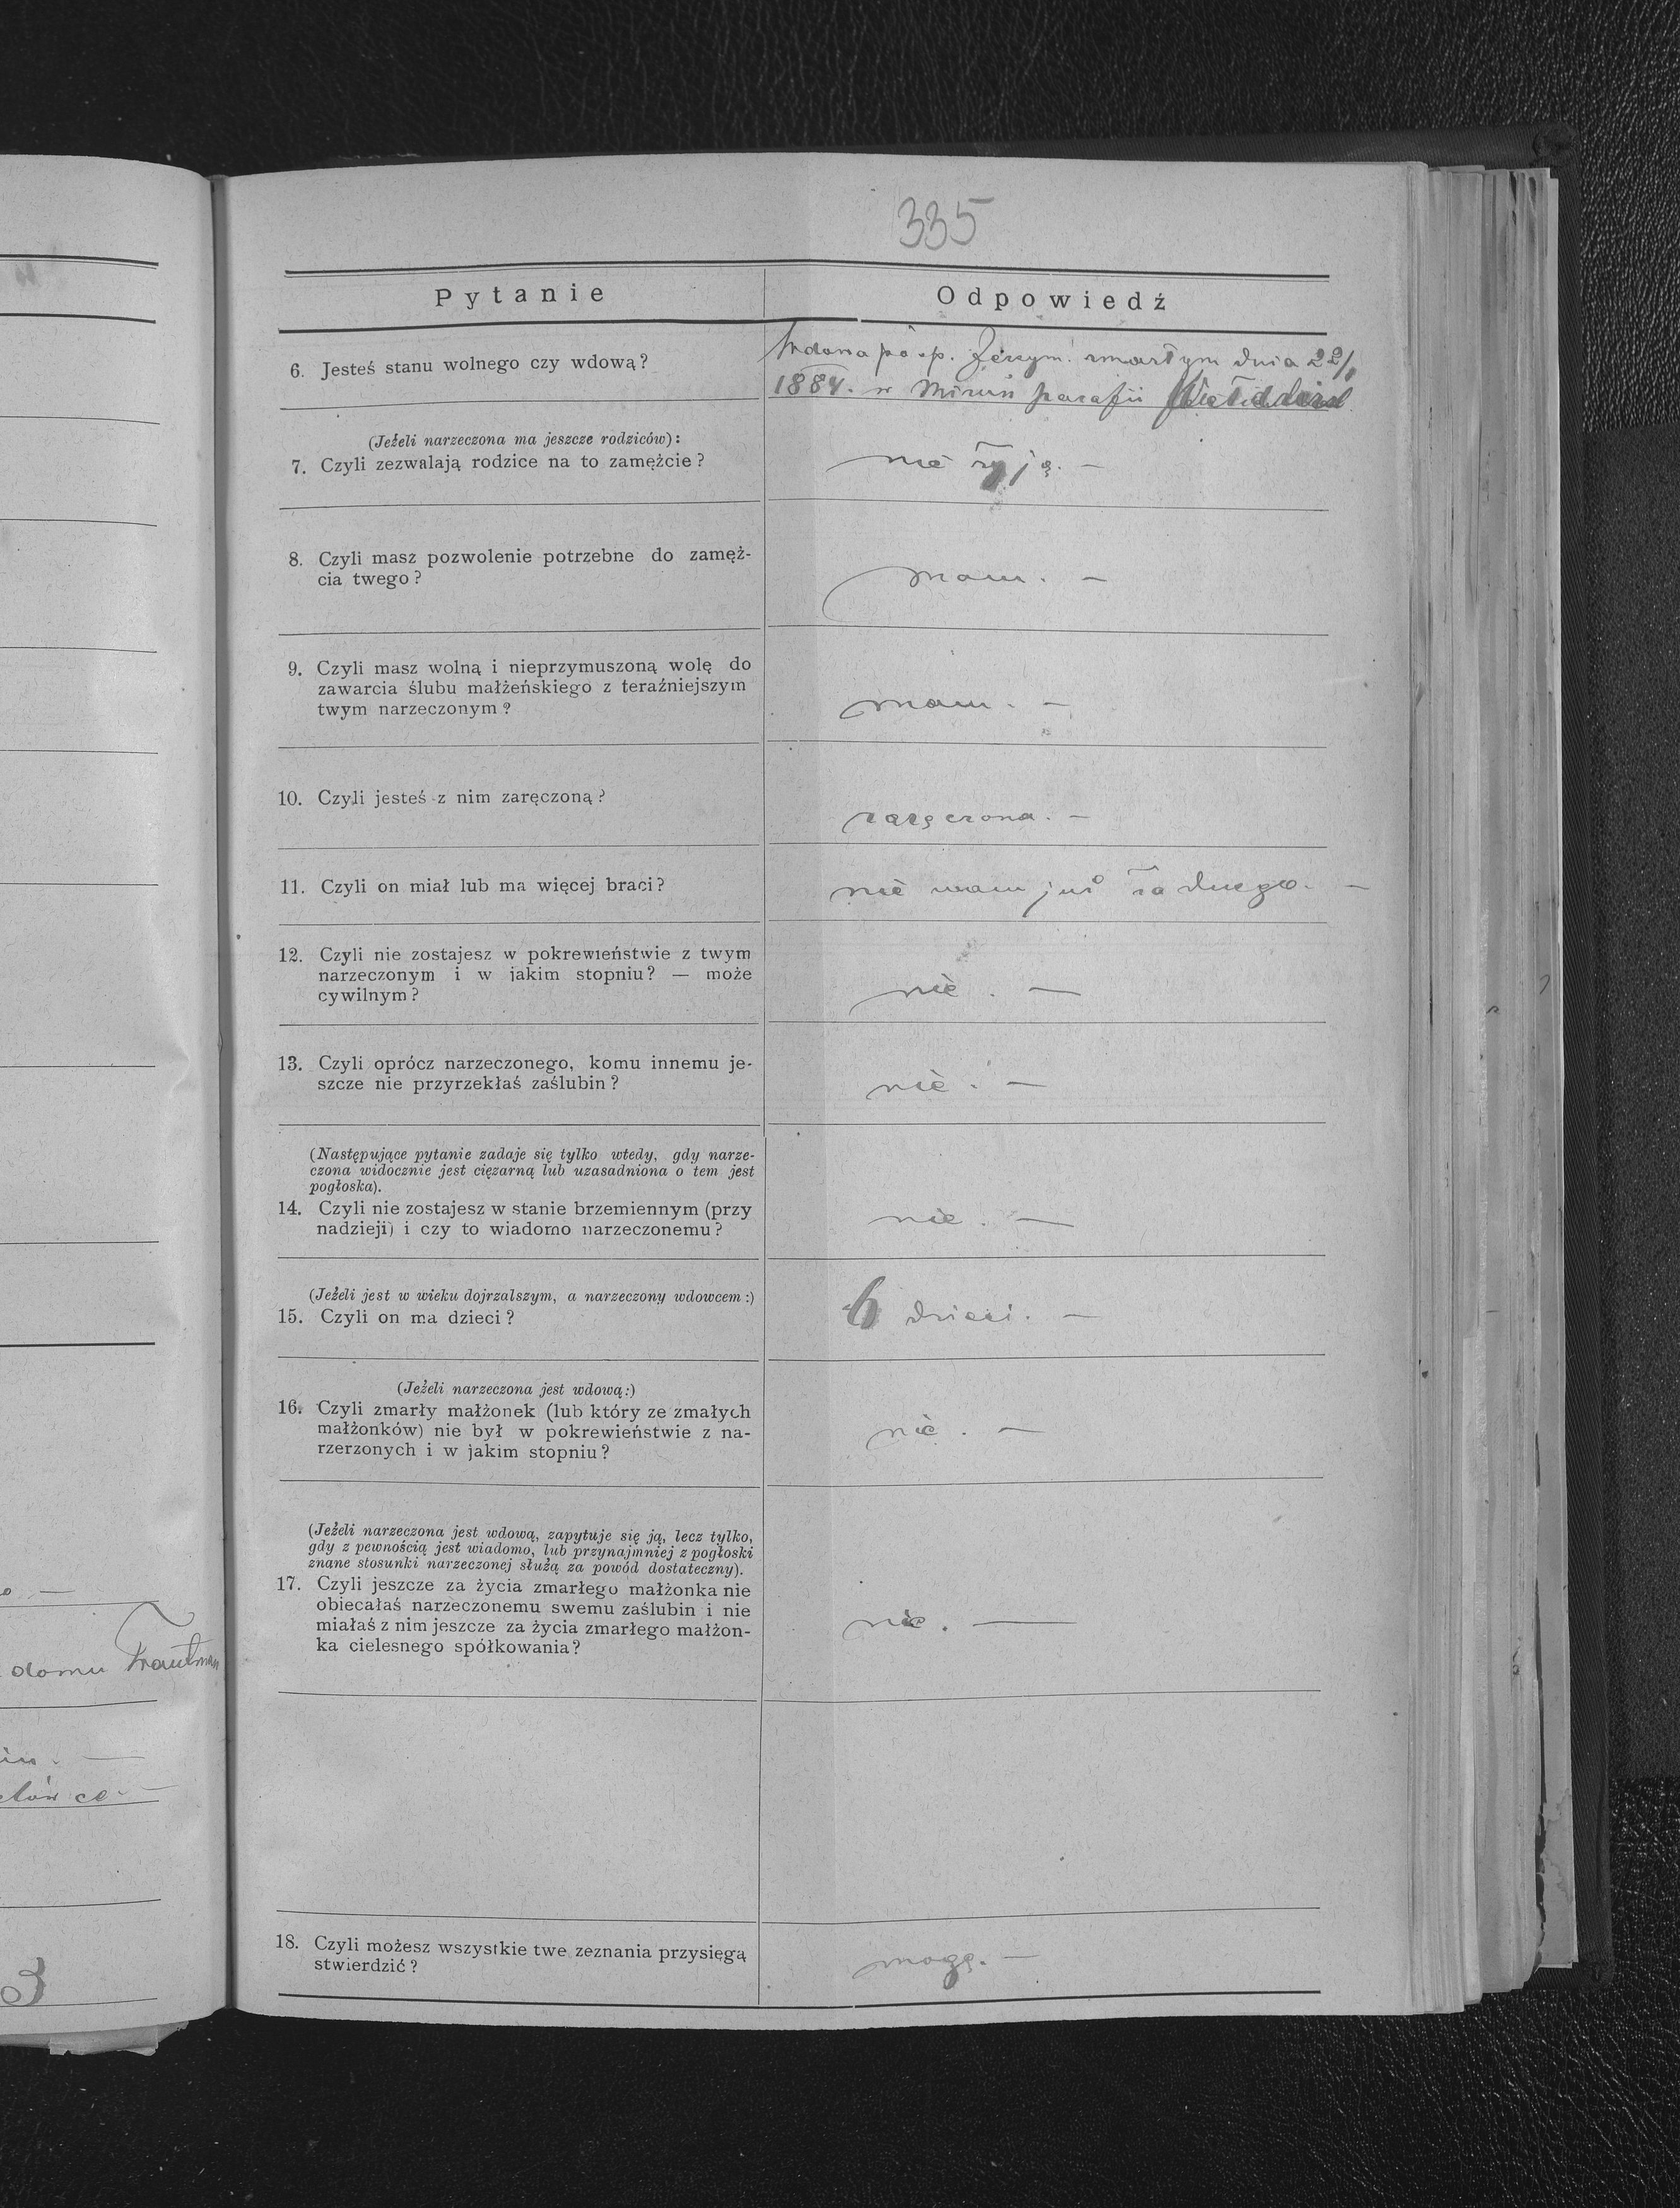 335
Pytanie
Odpowiedź
6. Jesteś stanu wolnego czy wdową?
Wdowa po śp. Jerzym zmarłym dnia 22/
1884. w parafii
(Jeżeli narzeczona ma jeszcze rodziców):
7. Czyli zezwalają rodzice na to zamężcie?
nie żyją. —
8. Czyli masz pozwolenie potrzebne do zamęż-
cia twego?
mam. —
9. Czyli masz wolną i nieprzymuszoną wolę do
zawarcia ślubu małżeńskiego z teraźniejszym
twym narzeczonym?
mam. —
10. Czyli jesteś z nim zaręczoną?
zaręczona. —
11. Czyli on miał lub ma więcej braci?
nie mam już żadnego. —
12. Czyli nie zostajesz w pokrewieństwie z twym
narzeczonym i w jakim stopniu? — może
cywilnym?
nie. —
13. Czyli oprócz narzeczonego, komu innemu je-
szcze nie przyrzekłaś zaślubin?
nie. —
(Następujące pytanie zadaje się tylko wtedy, gdy narze-
czona widocznie jest ciężarną lub uzasadniona o tem jest
pogłoska).
14. Czyli nie zostajesz w stanie brzemiennym (przy
nadzieji) i czy to wiadomo narzeczonemu?
nie. —
(Jeżeli jest w wieku dojrzalszym, a narzeczony wdowcem:)
15. Czyli on ma dzieci?
6 dzieci. —
(Jeżeli narzeczona jest wdową:)
16. Czyli zmarły małżonek (lub który ze zmałych
małżonków) nie był w pokrewieństwie z na-
rzerzonych i w jakim stopniu?
nie. —
(Jeżeli narzeczona jest wdową, zapytuje się ją, lecz tylko,
gdy z pewnością jest wiadomo, lub przynajmniej z pogłoski
znane stosunki narzeczonej służą za powód dostateczny).
17. Czyli jeszcze za życia zmarłego małżonka nie
obiecałaś narzeczonemu swemu zaślubin i nie
miałaś z nim jeszcze za życia zmarłego małżon-
ka cielesnego spółkowania?
nie. —
domu Trautman
18. Czyli możesz wszystkie twe zeznania przysięgą
stwierdzić?
mogę. —
3